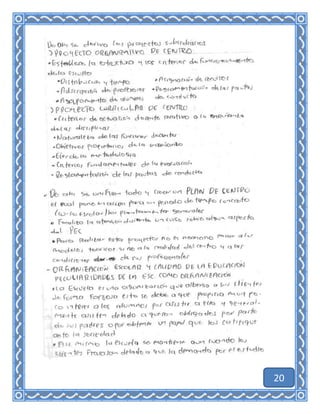 De ahí se derivan los proyectos subsidiarios
1) PROYECTO ORGANIZATIVO DE CENTRO:
• Establece la estructura y los criterios de funcionamiento
de la Escuela
• Distribución y tiempo
• Asignación de
• Adscripción de profesores
• Reglamentación de las pautas
• Agrupamiento de alumnos
de conducta
2) PROYECTO CURRICULAR DE CENTRO:
• Criterios de actuación docente relativo a la enseñanza
de las disciplinas
• Naturaleza de las funciones docentes
• Objetivos prioritarios de la
• metodología
• Criterios fundamentales de la evaluación
• Reglamentación de las pautas de conducta
- De ahí se unifican todo y crean un PLAN DE CENTRO
el cual pone en acción para un periodo de tiempo concreto
(curso escolar) los planteamientos generales
• la atención durante un curso sobre algún aspecto
del PEC
• Para realizar estos proyectos no es necesario mirar a los
modelos teóricos si no a la realidad del centro y a las
condiciones de su profesorado
- ORGANIZACIÓN ESCOLAR Y CALIDAD DE LA EDUCACIÓN
PECULIARIDADES DE LA ESC COMO ORGANIZACIÓN
• La Escuela es una organización que alberga a sus clientes
de forma forzosa esto se debe a que propicia muy po-
co interés a los alumnos por asistir a ella y general-
mente asisten debido a que son obligados por parte
de sus padres o por obtener un papel que los
ante la sociedad
• Así mismo la escuela se mantiene aun cuando los
debido a que la demanda por el estudio
20